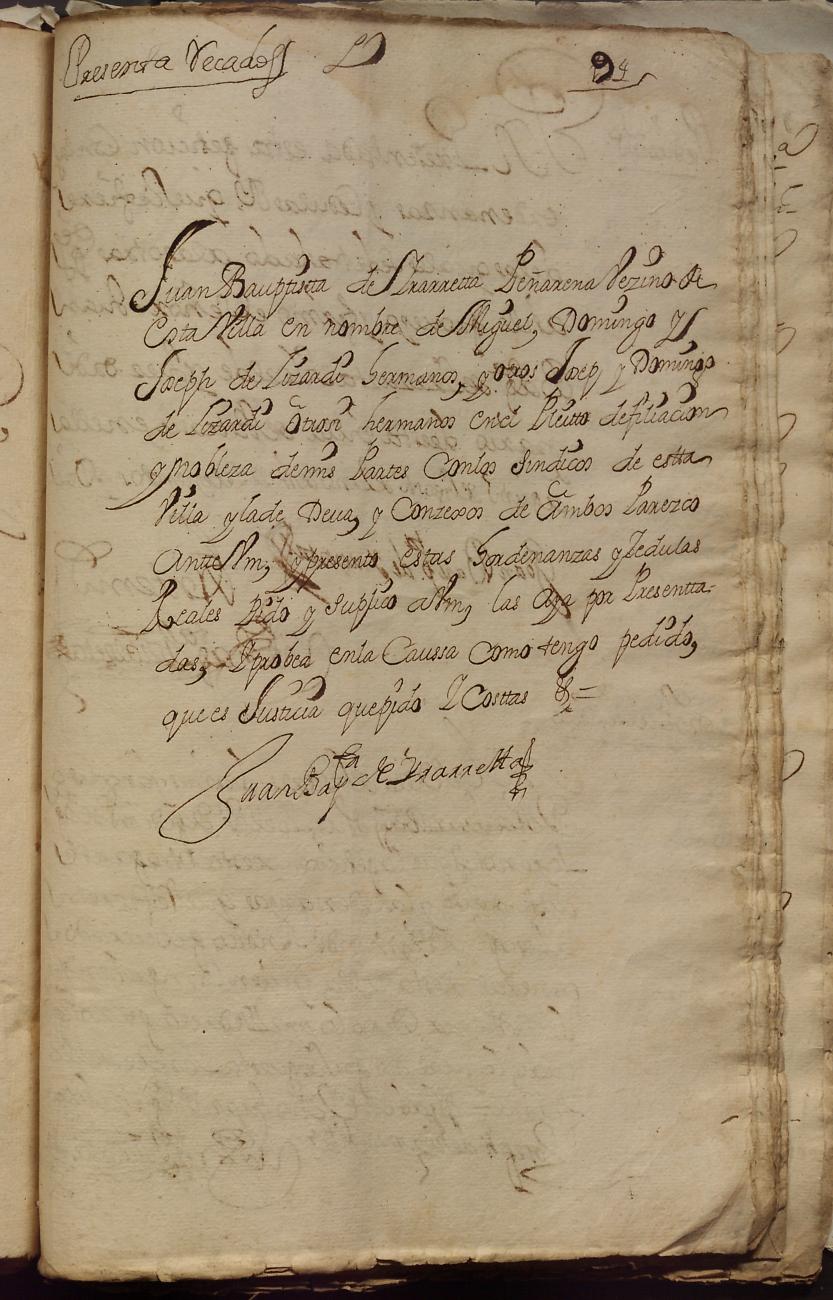 Presenta Recados
94
Juan Bauptista de Yrarretta Peñarena Vezino de
Esta Villa en nombre de Miguel, Domingo y
Joseph de Lizardi hermanos, y otros Josep, y Domingo
de Lizardi otrosi hermanos en el Pleitto de filiacion
y nobleza de mis Partes Con los Sindicos de estta
Villa y la de Deua, y Conzexos de Ambos Parezco
Ante Vm, y presento estas hordenanzas y Zedulas
Reales Pido y Suplico a Vm, las aya por Presentta-
das, y probea en la Caussa como tengo pedido,
que es Justicia que pido Y Costtas &=
Juan Bapta de Yrarretta